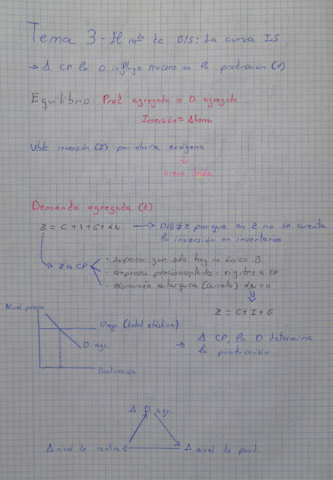 Tema 3 - El mdo de B/S: La curva IS
→ A CP la D influye mucho en la producción (Y)
Equilibrio: Prod agregada = D. agregada
Inversión = Ahorro
inversión (I) por ahora exógena
viene dada
Demanda agregada (Z)
Z = C + I + G + XN → PIB ≠ Z porque en Z no se cuenta
la inversión en inventarios
Z a CP
- Suponer que solo hay un único B.
- empresas precioaceptantes: rigidez a CP
- economía autárquica (cerrada) XN = 0
Z = C + I + G
Nivel precios
Oagr (total elástica)
D. agr.
Producción
→ A CP, la D determina
la producción
Δ D. agr
Δ nivel de renta
Δ nivel de prod.